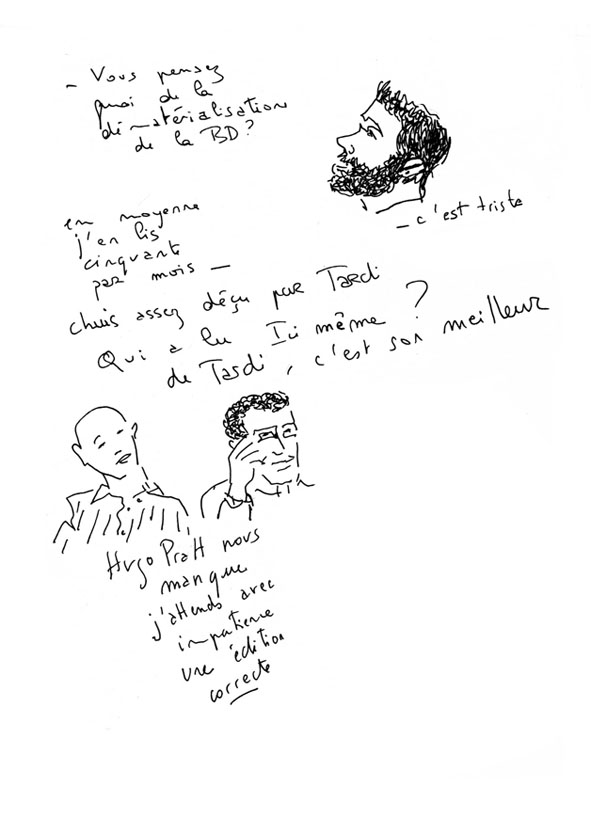 - Vous pensez
quoi de la
dématérialisation
de la BD?
- c'est triste
en moyenne
j'en lis
cinquante
par mois -
chuis assez déçu par Tardi
Qui a lu Ici même ?
de Tardi, c'est son meilleur
Hugo Pratt nous
manque
j'attends avec
impatience
une édition
correcte